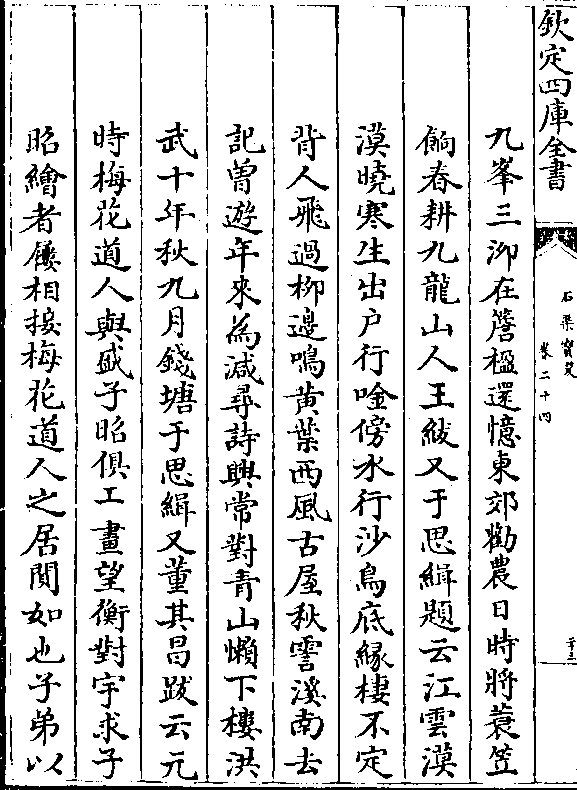 欽定四庫全書
石渠寶笈
卷二十四
九峯三泖在簷楹還憶東郊勸農日時將蓑笠
餉春耕九龍山人王紱又于思緝題云江雲漠
漠曉寒生出户行唫傍水行沙鳥底緣棲不定
背人飛過柳邊鳴黄葉西風古屋秋霅溪南去
記曽遊年來為減尋詩興常對青山懶下樓洪
武十年秋九月錢塘于思緝又董其昌跋云元
時梅花道人與盛子昭俱工畫望衡對宇求子
昭繪者屨相接梅花道人之居閴如也子弟以